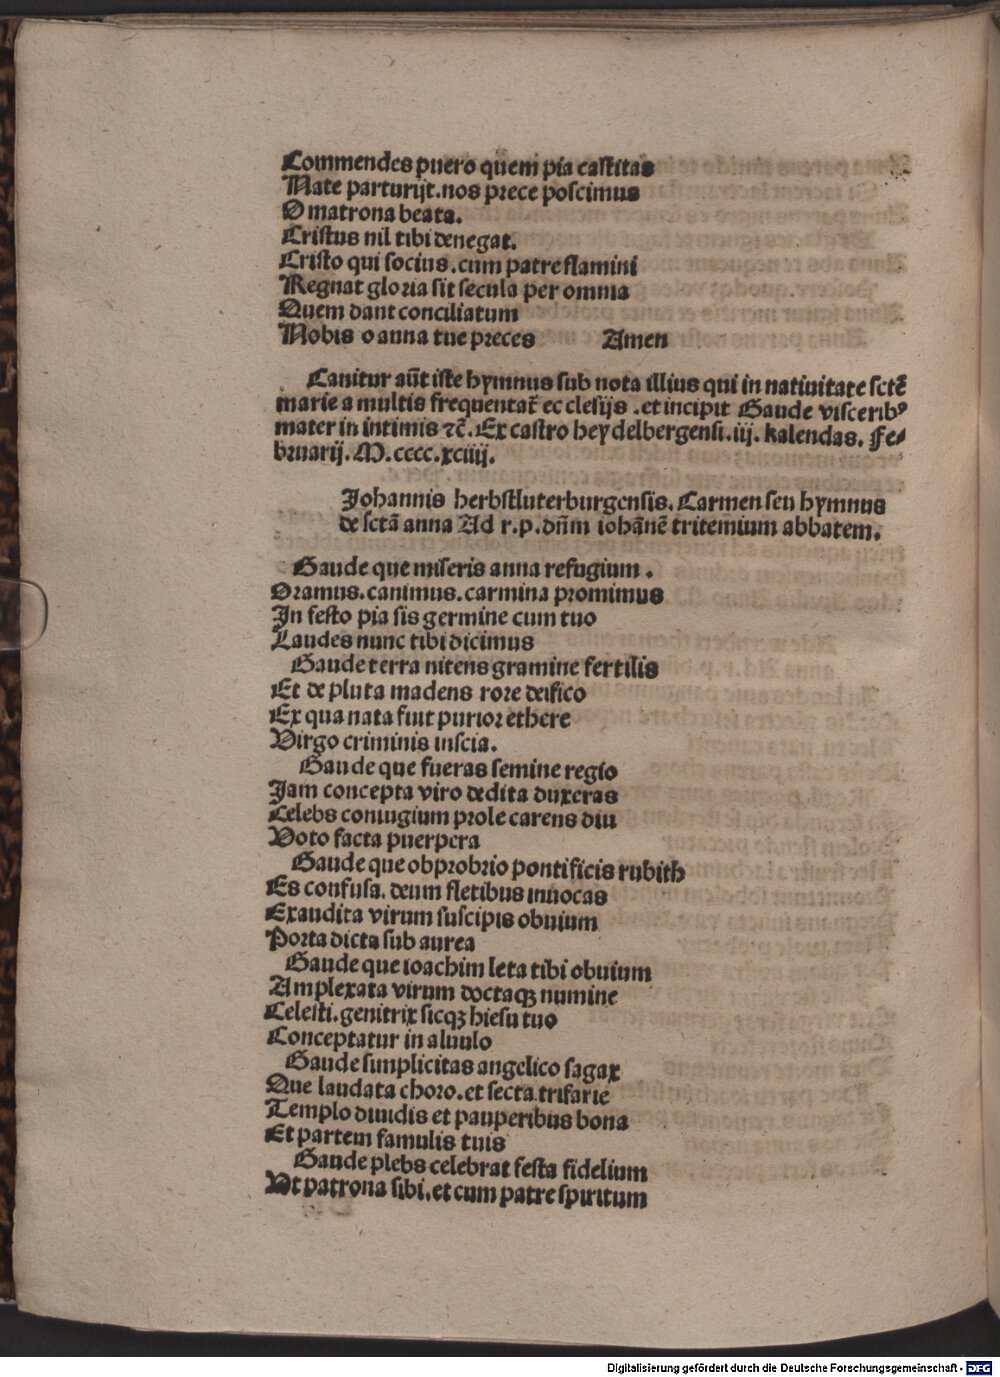 Commendes puero quem pia castitas
Nate parturijt.nos prece poscimus
O matrona beata.
Cristus nil tibi denegat.
Cristo qui socius.cum patre flamini
Regnat gloria sit secula per omnia
Quem dant conciliatum
Nobis o anna tue preces Amen
Canitur aūt iste hymnus sub nota illius qui in natiuitate sctē
marie a multis frequentat̄ ec clesijs .et incipit Gaude visceribꝰ
mater in intimis ⁊c̄. Ex castro heydelbergensi.iij. kalendas. Fe⸗
bruarij. M.cccc.xciiij.
Johannis herbstluterburgensis. Carmen seu hymnus
de sctā anna Ad r.p.dn̄m iohānē tritemium abbatem.
Gaude que miseris anna refugium .
Oramus.canimus.carmina promimus
In festo pia sis germine cum tuo
Laudes nunc tibi dicimus
Gaude terra nitens gramine fertilis
Et de pluta madens rore deifico
Ex qua nata fuit purior ethere
Virgo criminis inscia.
Gaude que fueras semine regio
Jam concepta viro dedita duxeras
Celebs coniugium prole carens diu
Voto facta puerpera
Gaude que obprobrio pontificis rubith
Es confusa. deum fletibus inuocas
Exaudita virum suscipis obuium
Porta dicta sub aurea
Gaude que ioachim leta tibi obuium
Amplexata virum doctaqꝫ numine
Celesti.genitrix sicqꝫ hiesu tuo
Conceptatur in aluulo
Gaude simplicitas angelico sagax
Que laudata choro.et secta trifarie
Templo diuidis et pauperibus bona
Et partem famulis tuis
Gaude plebs celebrat festa fidelium
Vt patrona sibi.et cum patre spiritum
Digitalisierung gefördert durch die Deutsche Forschungsgemeinschaft - DFG